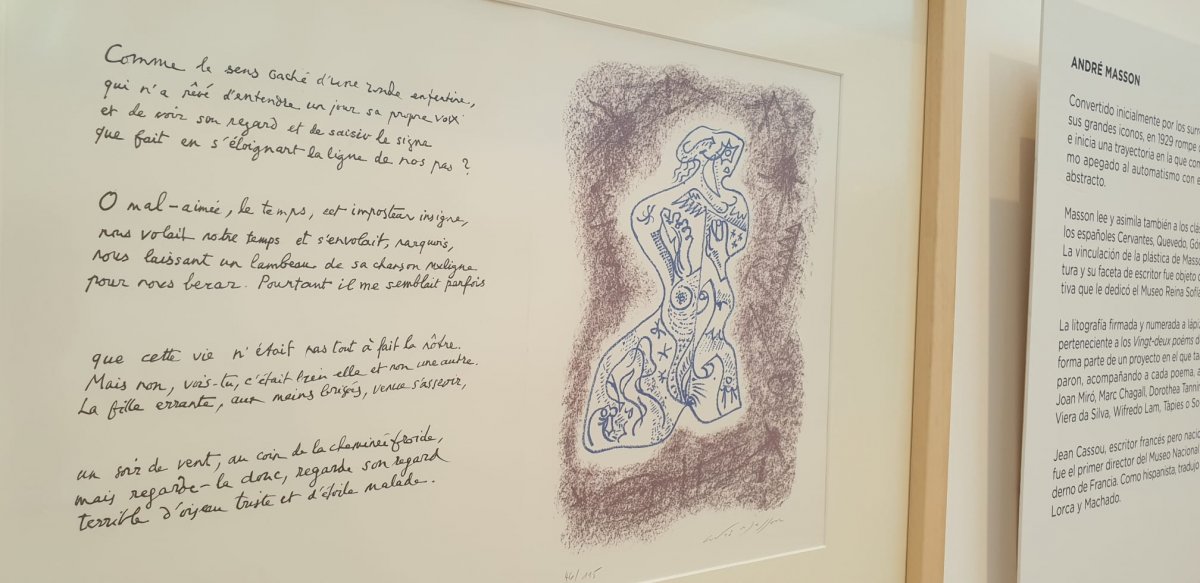 Comme le sens caché d'une ronde enfantine,
qui n'a rêvé d'entendre un jour sa propre voix
et de voir son regard et de saisir le signe
que fait en s'éloignant la ligne de nos pas ?
O mal-aimée, le temps, cet imposteur insigne,
nous volait notre temps et s'envolait, narquois,
nous laissant un lambeau de sa chanson maligne
pour nous bercer. Pourtant il me semblait parfois
que cette vie n'était pas tout à fait la nôtre.
Mais non, vois-tu, c'était bien elle et non une autre.
La fille errante, aux mains brisées, venue s'asseoir,
un soir de vent, au coin de la cheminée froide,
mais regarde-la donc, regarde son regard
terrible d'oiseau triste et d'étoile malade.
46/115
ANDRÉ MASSON
Convertido inicialmente por los surr
sus grandes iconos, en 1929 rompe
e inicia una trayectoria en la que con
mo apegado al automatismo con e
abstracto.
Masson lee y asimila también a los clás
los españoles Cervantes, Quevedo, Gón
La vinculación de la plástica de Masso
tura y su faceta de escritor fue objeto
tiva que le dedicó el Museo Reina Sofía
La litografía firmada y numerada a lápi
perteneciente a los Vingt-deux poèms d
forma parte de un proyecto en el que ta
paron, acompañando a cada poema, a
Joan Miró, Marc Chagall, Dorothea Tannin
Viera da Silva, Wifredo Lam, Tàpies o So
Jean Cassou, escritor francés pero nacio
fue el primer director del Museo Nacional
derno de Francia. Como hispanista, tradujo
Lorca y Machado.